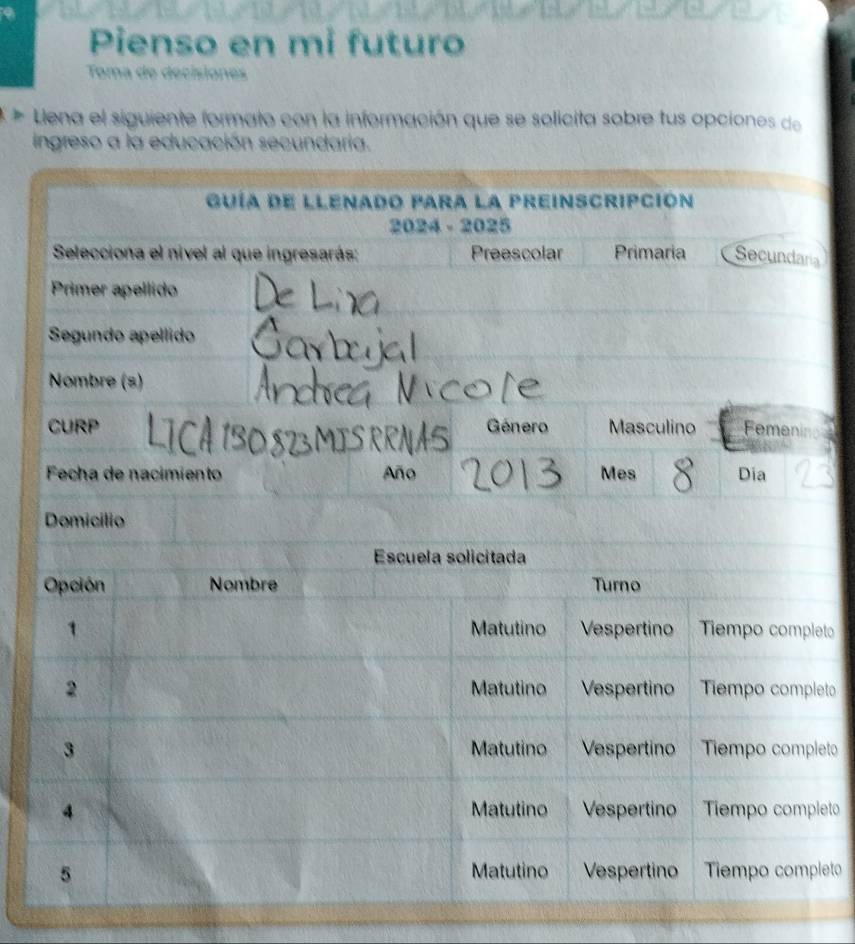 Pienso en mi futuro
Toma de decisiones
Llena el siguiente formato con la información que se solicita sobre tus opciones de
ingreso a la educación secundaria.
GUÍA DE LLENADO PARA LA PREINSCRIPCIÓN
2024 - 2025
Selecciona el nivel al que ingresarás: Preescolar Primaria Secundaria
Primer apellido De Lira
Segundo apellido Carbajal
Nombre (s) Andrea Nicole
CURP LICA130823MJSRRNA5 Género Masculino Femenino
Fecha de nacimiento Año 2013 Mes 8 Día 23
Domicilio
Escuela solicitada
Opción Nombre Turno
1 Matutino Vespertino Tiempo completo
2 Matutino Vespertino Tiempo completo
3 Matutino Vespertino Tiempo completo
4 Matutino Vespertino Tiempo completo
5 Matutino Vespertino Tiempo completo